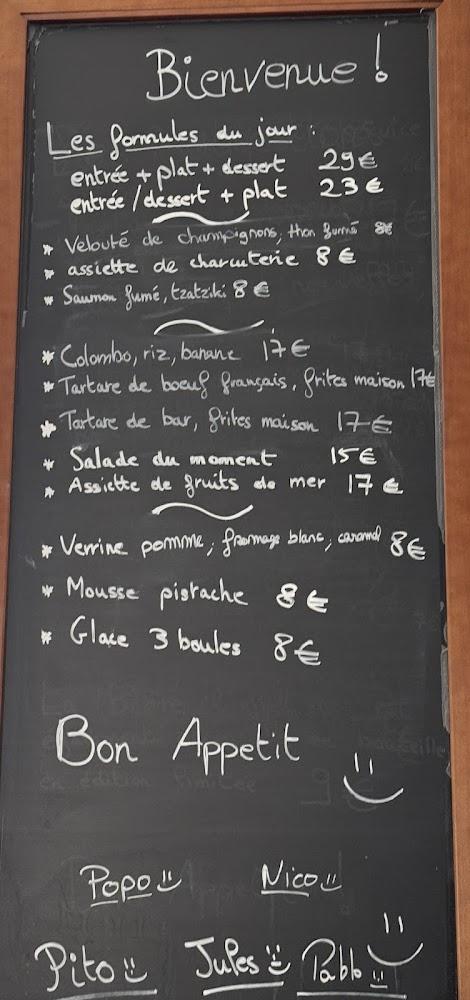 Bienvenue !
Les formules du jour :
entrée + plat + dessert 29€
entrée / dessert + plat 23€
* Velouté de champignons, thon fumé 8€
* assiette de charcuterie 8€
* Saumon fumé, tzatziki 8€
* Colombo, riz, banane 17€
* Tartare de boeuf français, frites maison 17€
* Tartare de bar, frites maison 17€
* Salade du moment 15€
* Assiette de fruits de mer 17€
* Verrine pomme, fromage blanc, caramel 8€
* Mousse pistache 8€
* Glace 3 boules 8€
Bon Appetit
Popo Nico
Pito Jules Pablo